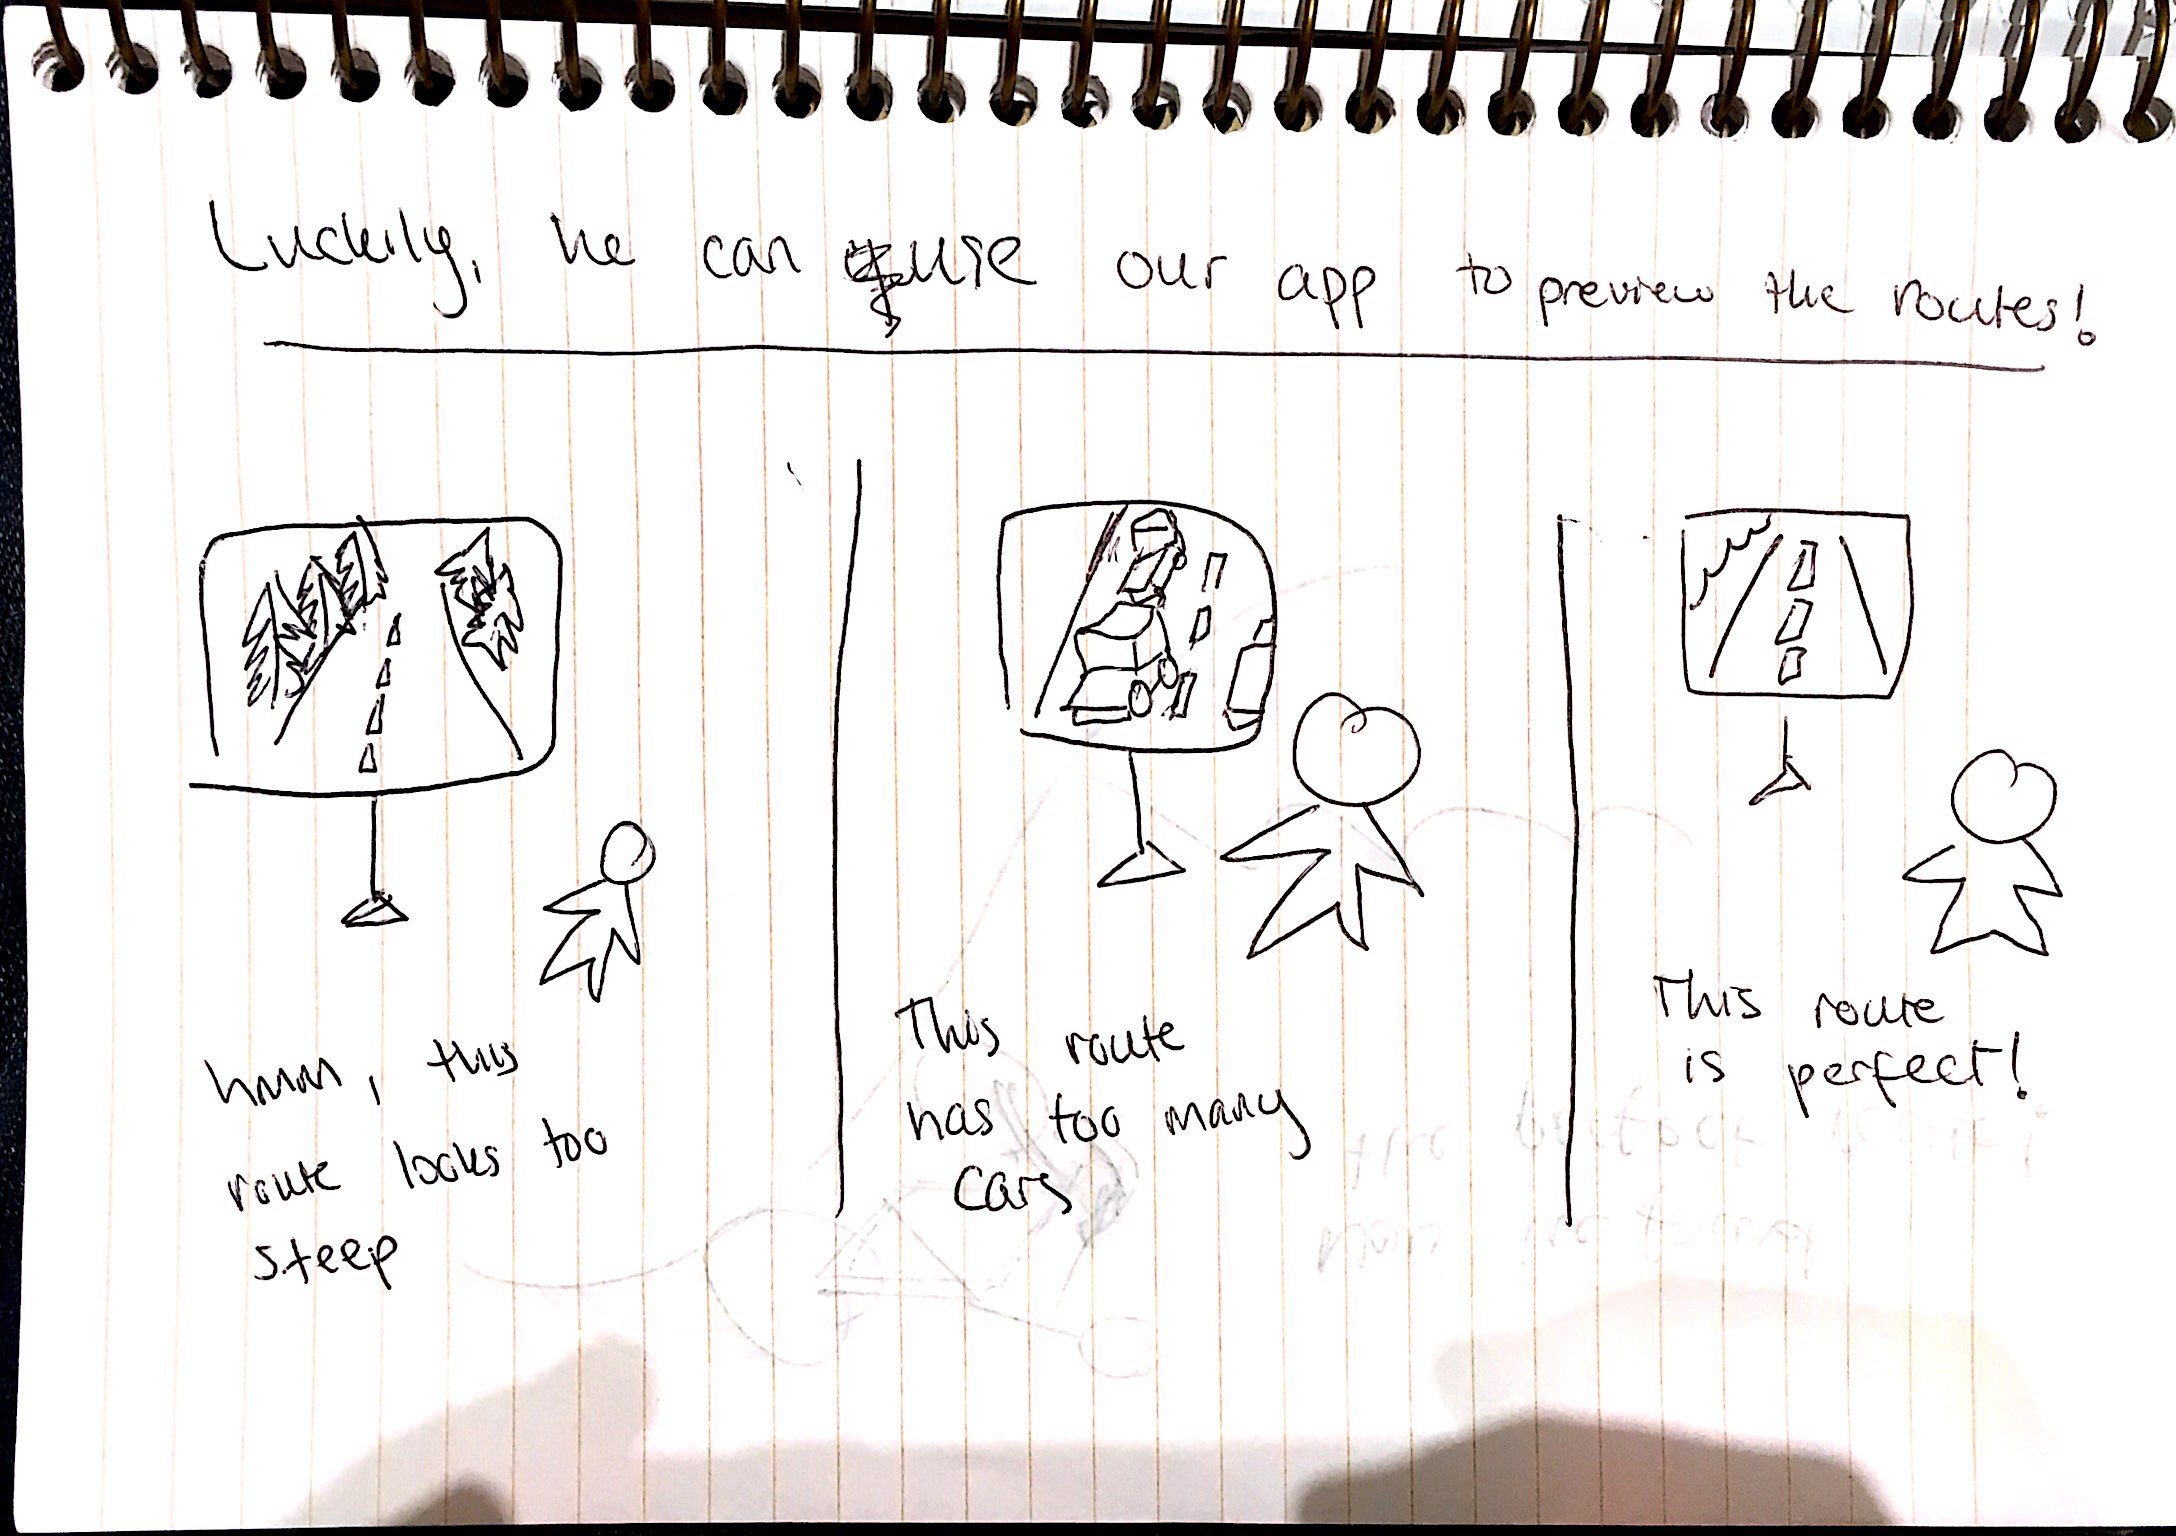 Luckily, he can use our app to preview the routes!
hmm, this
route looks too
steep
This route
has too many
cars
This route
is perfect!